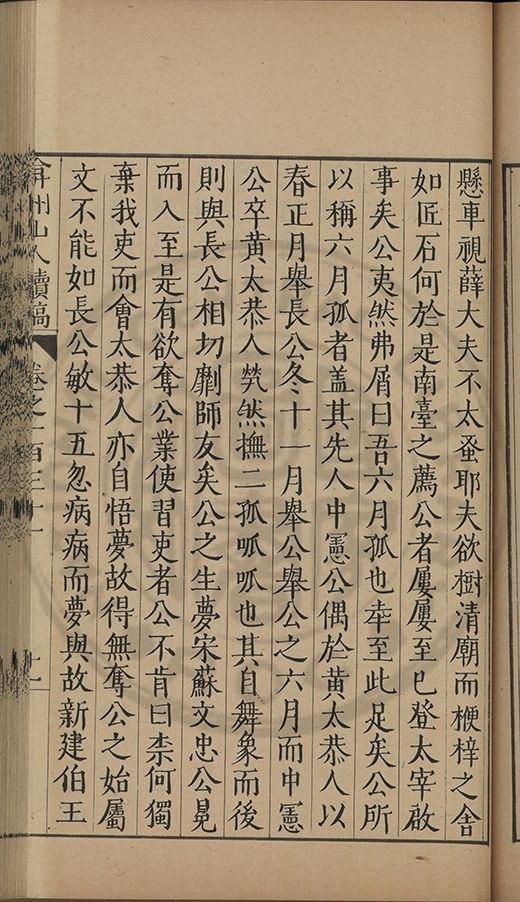 懸車視薛大夫不太蚤耶夫欲樹清廟而楩梓之舍
如匠石何於是南臺之薦公者屢屢至巳登太宰啟
事矣公夷然弗屑曰吾六月孤也幸至此足矣公所
以稱六月孤者盖其先人中憲公偶於黃太恭人以
春正月舉長公冬十一月舉公舉公之六月而中憲
公卒黃太恭人煢然撫二孤呱呱也其自舞象而後
則與長公相切劘師友矣公之生夢宋蘇文忠公晃
而入至是有欲奪公業使習吏者公不肯曰柰何獨
棄我吏而會太恭人亦自悟夢故得無奪公之始屬
文不能如長公敏十五忽病病而夢與故新建伯王
弇州山人續稿 卷之一百三十一 十一